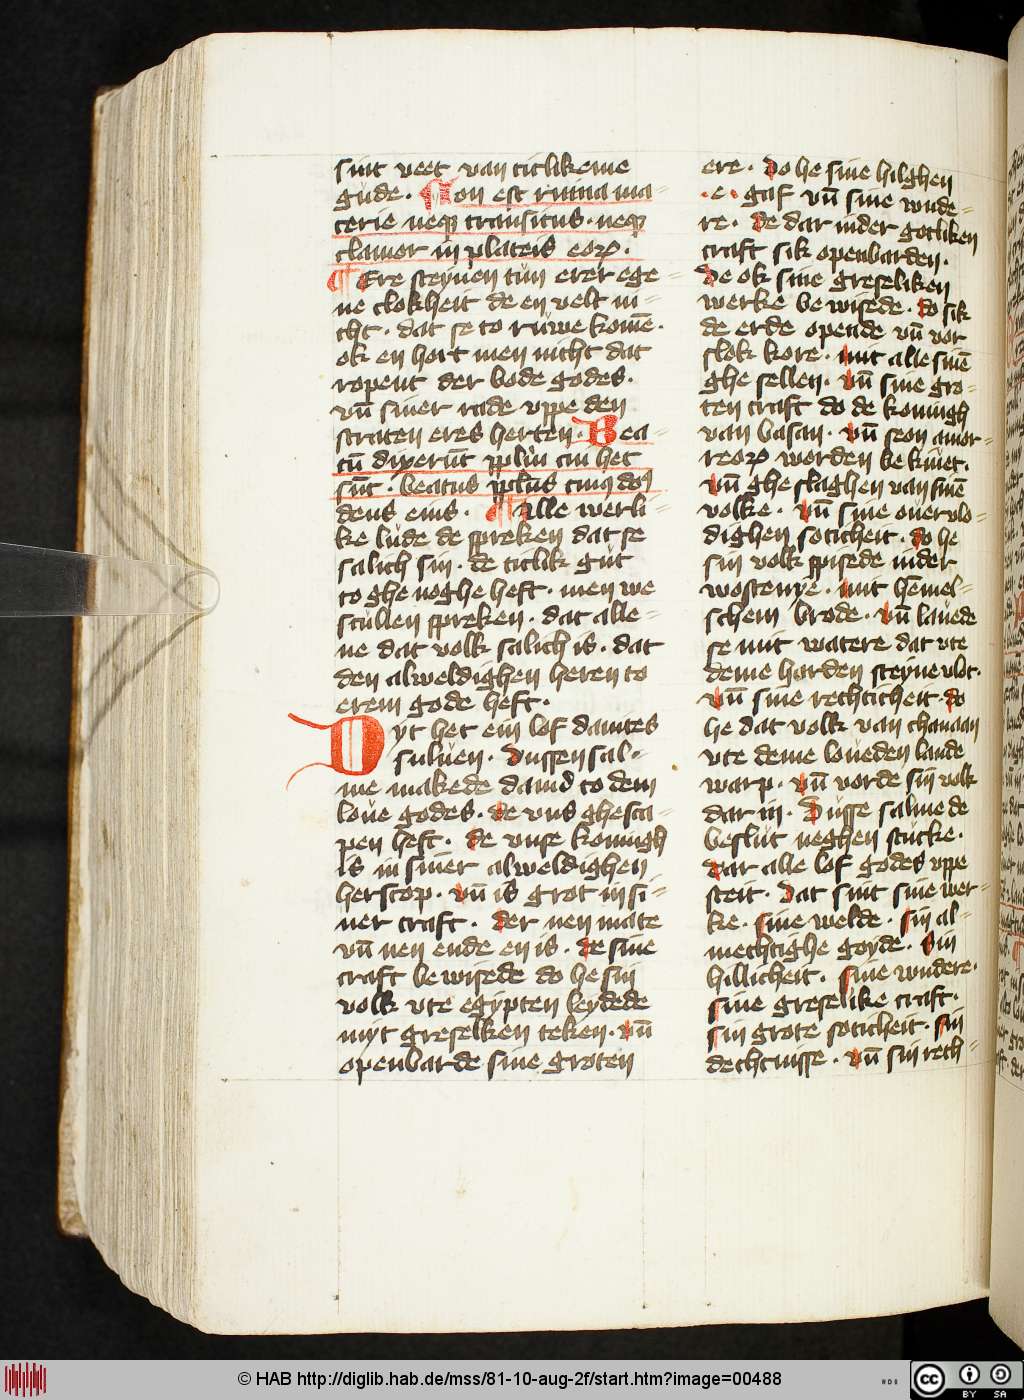 sint veet van titlikeme
gude. Non est ruina ma-
cerie neqz transitus. neqz
clamor in plateis eorꝝ.
¶ Ere steynen tun erer ege-
ne clokheit de en velt ni-
cht. dat se to ruwe kome͞.
ok en hort men nicht dat
ropent der bode godes.
vn͞ siner rade vppe den
straten eres herten. Bea-
tu͞ dixeru͞t pplm cui hec
su͞t. beatus pplus cuiqz dn͞s
deus eius. ¶ Alle werli-
ke lude de spreken dat se
salich sin. de titlik gut
to ghe noghe heft. men we
scullen spreken. dat alle-
ne dat volk salich is. dat
den alweldighen heren to
erem gode heft.
Dyt het ein lof dauites
suluen. Dussen sal-
me makede dauid to dem
loue godes. de vns ghesca-
pen heft. de vnse koningh
is in siner alweldighen
herscop. vn͞ is grot in si-
ner craft. der nen mate
vn͞ nen ende en is. de sine
craft be wisede do he sin
volk vte egypten leydede
myt greselken teken. vn͞
openbarde sine groten
ere. do he sine hilghen
.e. gaf vn͞ sine wnde-
re. de dar inder gotliken
craft sik openbarden.
De ok sine greseliken
werke be wisede. do sik
de erde opende vn͞ vor
slok kore. mit alle sine͞
ghe sellen. vn͞ sine gro-
ten craft do de koningh
van basan. vn͞ seon amor-
reorꝝ worden be ku͞et.
vn͞ ghe slaghen van sine͞
volke. vn͞ sine ouervlo-
dighen soticheit. do he
sin volk spisede inder
wostenye. mit he͞mel-
schem brode. vn͞ lauede
se mit watere dat vte
deme harden steyne vlot.
vn͞ sine rechticheit. do
he dat volk van chanaan
vte deme loueden lande
warp. vn͞ vorde sin volk
dar in. Dusse salme de
beslut neghen stucke.
dar alle lof godes vppe
steit. dat sint sine wer-
ke. sine welde. sin al-
mechtighe goyde. Sin
hillicheit. sine wndere.
sine greselike craft.
sin grote soticheit. sin
dechtnisse. vn͞ sin rech-
© HAB http://diglib.hab.de/mss/81-10-aug-2f/start.htm?image=00488
HAB
cc BY SA